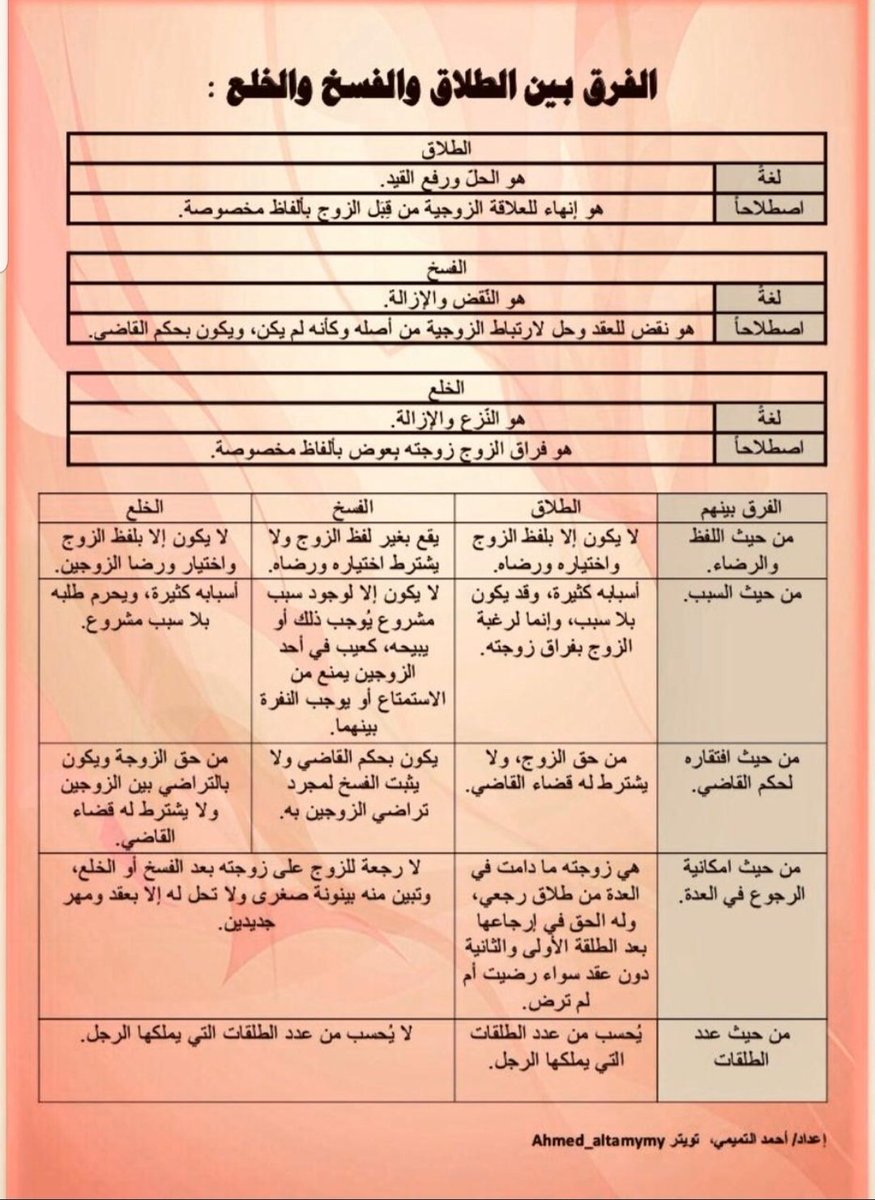 الفرق بين الطلاق والفسخ والخلع :
الطلاق
لغةً هو الحلّ ورفع القيد.
اصطلاحاً هو إنهاء للعلاقة الزوجية من قِبَل الزوج بألفاظ مخصوصة.
الفسخ
لغةً هو النّقض والإزالة.
اصطلاحاً هو نقض للعقد وحل لارتباط الزوجية من أصله وكأنه لم يكن، ويكون بحكم القاضي.
الخلع
لغةً هو النّزع والإزالة.
اصطلاحاً هو فراق الزوج زوجته بعوض بألفاظ مخصوصة.
الفرق بينهم الطلاق الفسخ الخلع
من حيث اللفظ
والرضاء.
لا يكون إلا بلفظ الزوج
واختياره ورضاه.
يقع بغير لفظ الزوج ولا
يشترط اختياره ورضاه.
لا يكون إلا بلفظ الزوج
واختيار ورضا الزوجين.
من حيث السبب.
أسبابه كثيرة، وقد يكون
بلا سبب، وإنما لرغبة
الزوج بفراق زوجته.
لا يكون إلا لوجود سبب
مشروع يُوجب ذلك أو
يبيحه، كعيب في أحد
الزوجين يمنع من
الاستمتاع أو يوجب النفرة
بينهما.
أسبابه كثيرة، ويحرم طلبه
بلا سبب مشروع.
من حيث افتقاره
لحكم القاضي.
من حق الزوج، ولا
يشترط له قضاء القاضي.
يكون بحكم القاضي ولا
يثبت الفسخ لمجرد
تراضي الزوجين به.
من حق الزوجة ويكون
بالتراضي بين الزوجين
ولا يشترط له قضاء
القاضي.
من حيث امكانية
الرجوع في العدة.
هي زوجته ما دامت في
العدة من طلاق رجعي،
وله الحق في إرجاعها
بعد الطلقة الأولى والثانية
دون عقد سواء رضيت أم
لم ترض.
لا رجعة للزوج على زوجته بعد الفسخ أو الخلع،
وتبين منه بينونة صغرى ولا تحل له إلا بعقد ومهر
جديدين.
من حيث عدد
الطلقات
يُحسب من عدد الطلقات
التي يملكها الرجل.
لا يُحسب من عدد الطلقات التي يملكها الرجل.
إعداد/ أحمد التميمي، تويتر Ahmed_altamymy